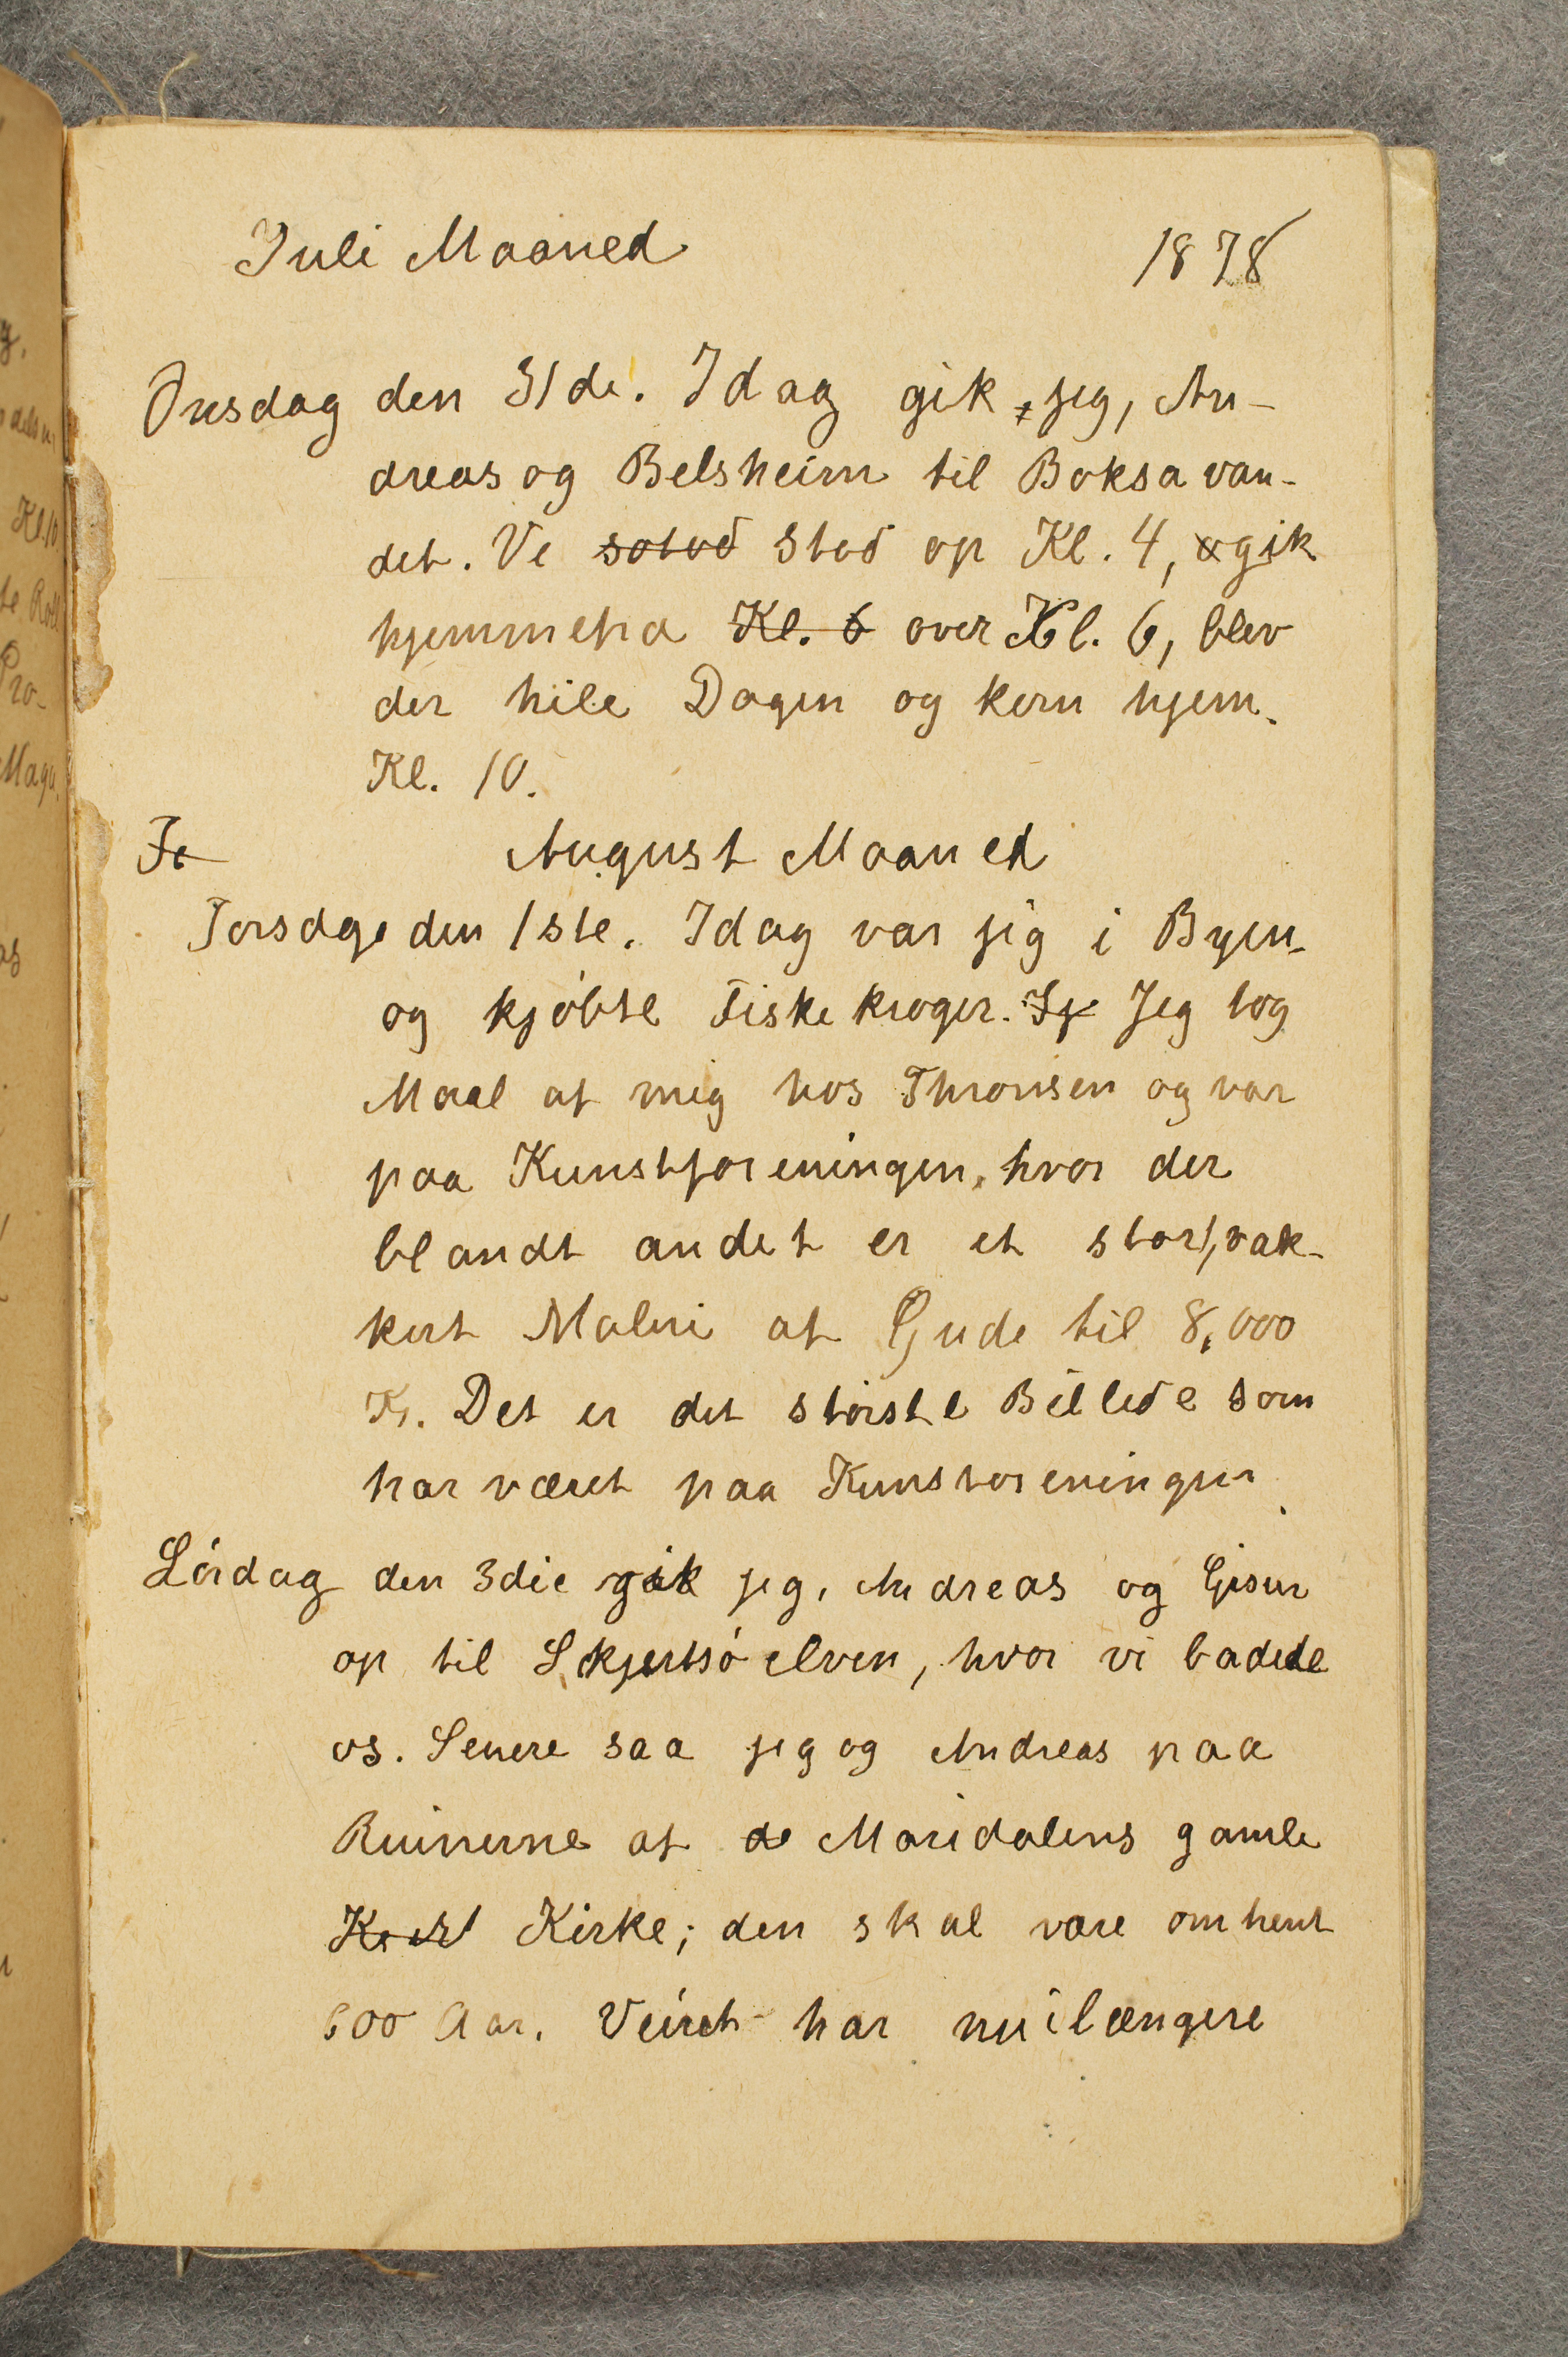 Juli Maaned 1878
Onsdag den 31de. Idag gik jeg, An-
dreas og Belsheim til Boksavan-
det. Ve sotod stod op Kl. 4, gik
hjemmefra Kl. 6 over Kl. 6, blev
der hele Dagen og kom hjem
Kl. 10.
To August Maaned
Torsdag den 1ste. Idag var jeg i Byen
og kjøbte Fiskekroger. Jeg tog
Maal af mig hos Thronsen og var
paa Kunstforeningen, hvor der
blandt andet er et stort, vak-
kert Maleri af Gude til 8,000
Kr. Det er det störste Billede som
har været paa Kunstoreningen.
Lördag den 3die gik jeg, Andreas og
op til Skjertsöelven, hvor vi badede
os. Senere saa jeg og Andreas paa
Ruinerne af de Maridalens gamle
Kirke; den skal være omhent
600 Aar. Veiret har nu i længere
Kl. 10
Pro-